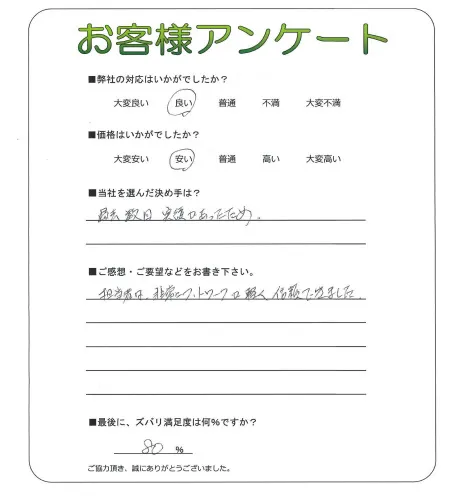 お客様アンケート
■弊社の対応はいかがでしたか？
大変良い 良い 普通 不満 大変不満
■価格はいかがでしたか？
大変安い 安い 普通 高い 大変高い
■当社を選んだ決め手は？
過去 数回 実績があったため。
■ご感想・ご要望などをお書き下さい。
担当者は、非常にフットワークが軽く 信頼できました。
■最後に、ズバリ満足度は何％ですか？
80 ％
ご協力頂き、誠にありがとうございました。